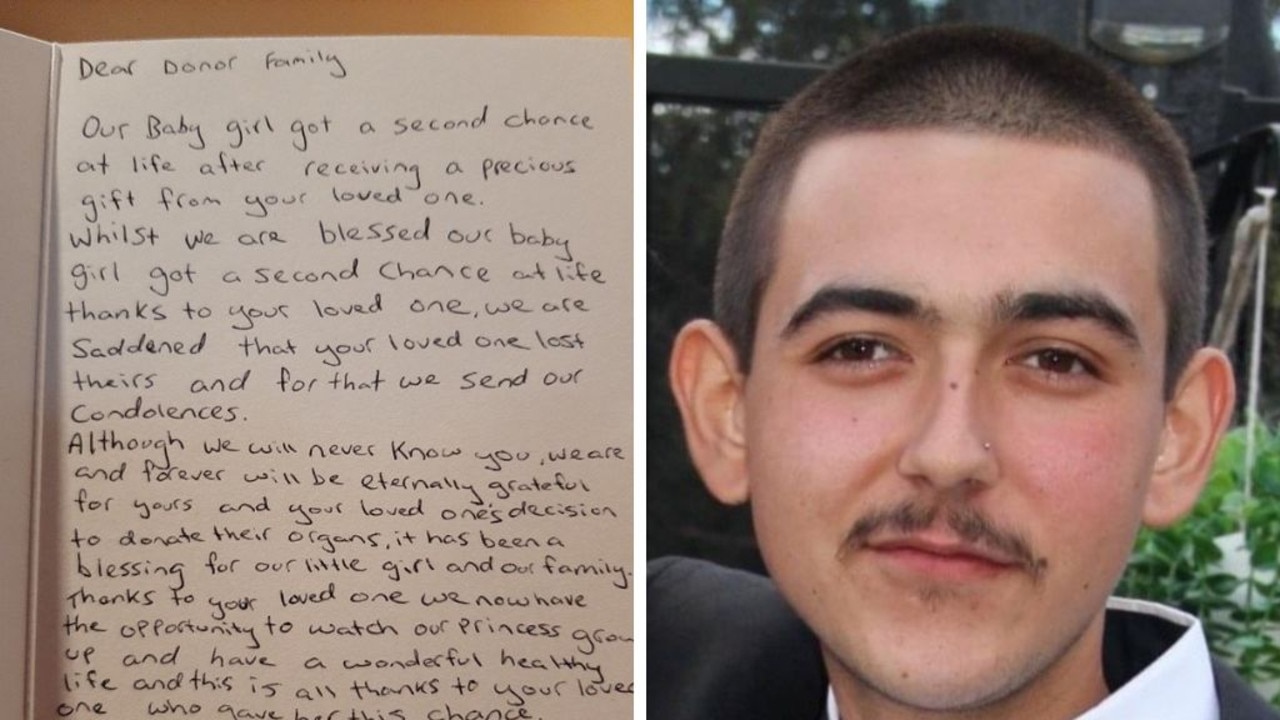 Dear Donor Family
Our Baby girl got a second chance
at life after receiving a precious
gift from your loved one.
Whilst we are blessed our baby
girl got a second Chance at life
thanks to your loved one, we are
Saddened that your loved one lost
theirs and for that we send our
Condolences.
Although we will never Know you, we are
and forever will be eternally grateful
for yours and your loved one's decision
to donate their organs, it has been a
blessing for our little girl and our family.
Thanks to your loved one we now have
the opportunity to watch our princess grow
up and have a wonderful healthy
life and this is all thanks to your loved
one who gave her this chance.